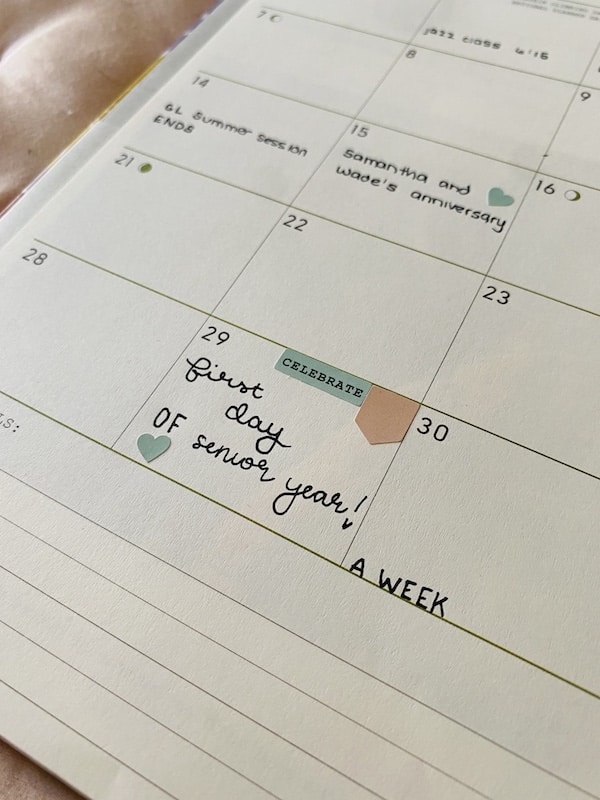 7
jazz class 6:15
8
9
14
GL Summer Session
ENDS
15
Samantha and
wade's anniversary
16
21
22
23
28
29
CELEBRATE
first
day
OF senior year!
30
A WEEK